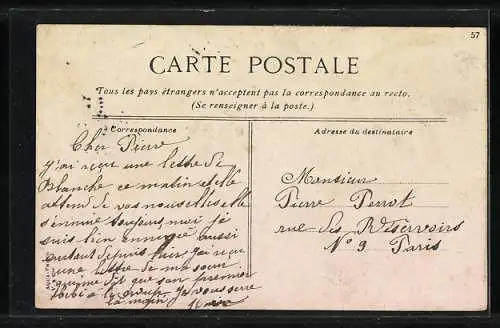 57
CARTE POSTALE
Tous les pays étrangers n'acceptent pas la correspondance au recto.
(Se renseigner à la poste.)
Correspondance
Adresse du destinataire
Cher Pierre
j'ai reçu une lettre de
Blanche ce matin et elle
attend de vos nouvelles elle
s'ennuie toujours, moi je
suis bien ennuyée aussi
autant depuis j'ai reçu
une lettre de ma sœur
dit que son premier
la Je vous serre
la main
Monsieur
Pierre Perrot
rue des Réservoirs
N° 9 Paris